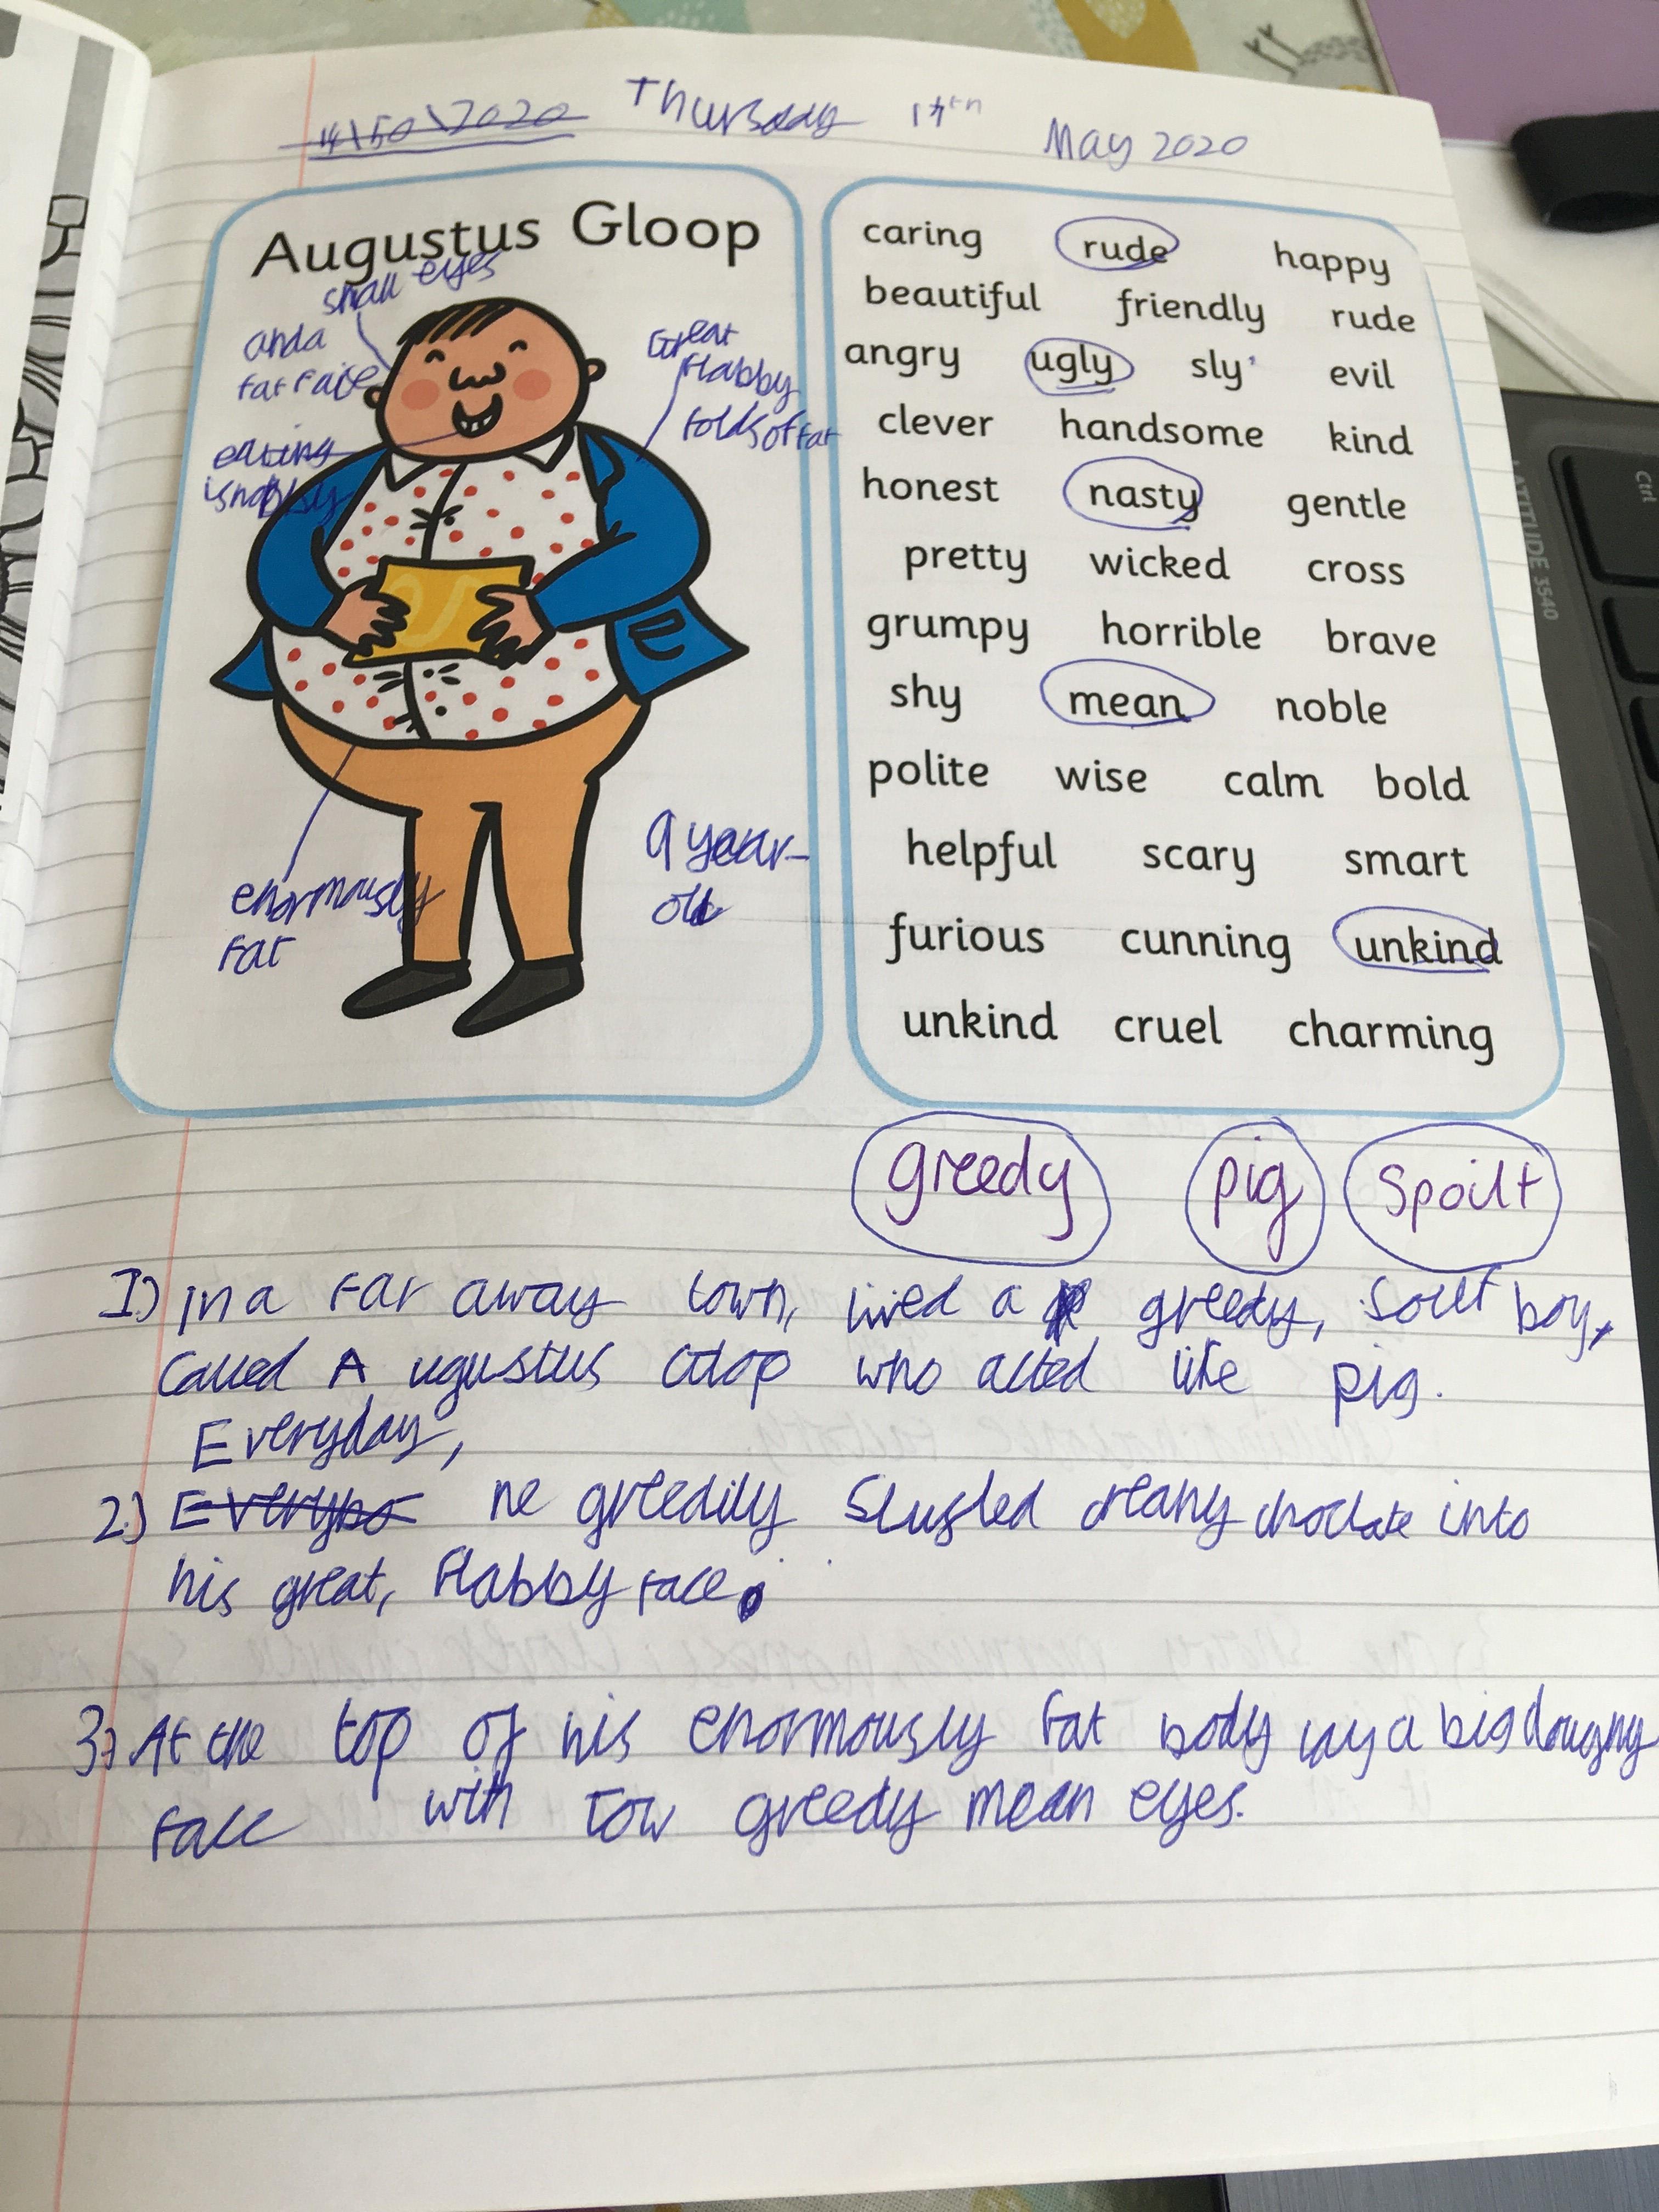 14\50\2020 Thursday 14th May 2020
Augustus Gloop
small eyes
and a
fat face
Great
flabby
folds of fat
eating
is hobby
enormously
fat
9 year-
old
caring rude happy
beautiful friendly rude
angry ugly sly' evil
clever handsome kind
honest nasty gentle
pretty wicked cross
grumpy horrible brave
shy mean noble
polite wise calm bold
helpful scary smart
furious cunning unkind
unkind cruel charming
greedy pig Spoilt
1) In a far away town, lived a greedy, boy,
called Augustus Gloop who acted like pig.
Everyday,
2) Everybo he greedily creamy into
his great, flabby face.
3) At the top of his enormously fat body lay a big doughy
face with tow greedy mean eyes.
LATITUDE 3540
Ctrl